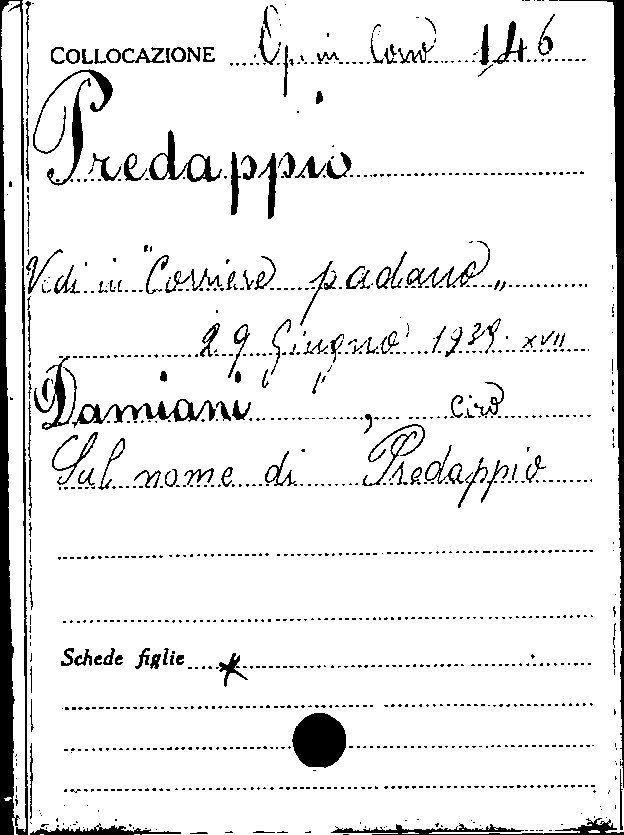 COLLOCAZIONE Op. in Corso 146
Predappio
Vedi in "Corriere padano„
29 Giugno 1939 XVII
Damiani, Ciro
Sul nome di Predappio
Schede figlie